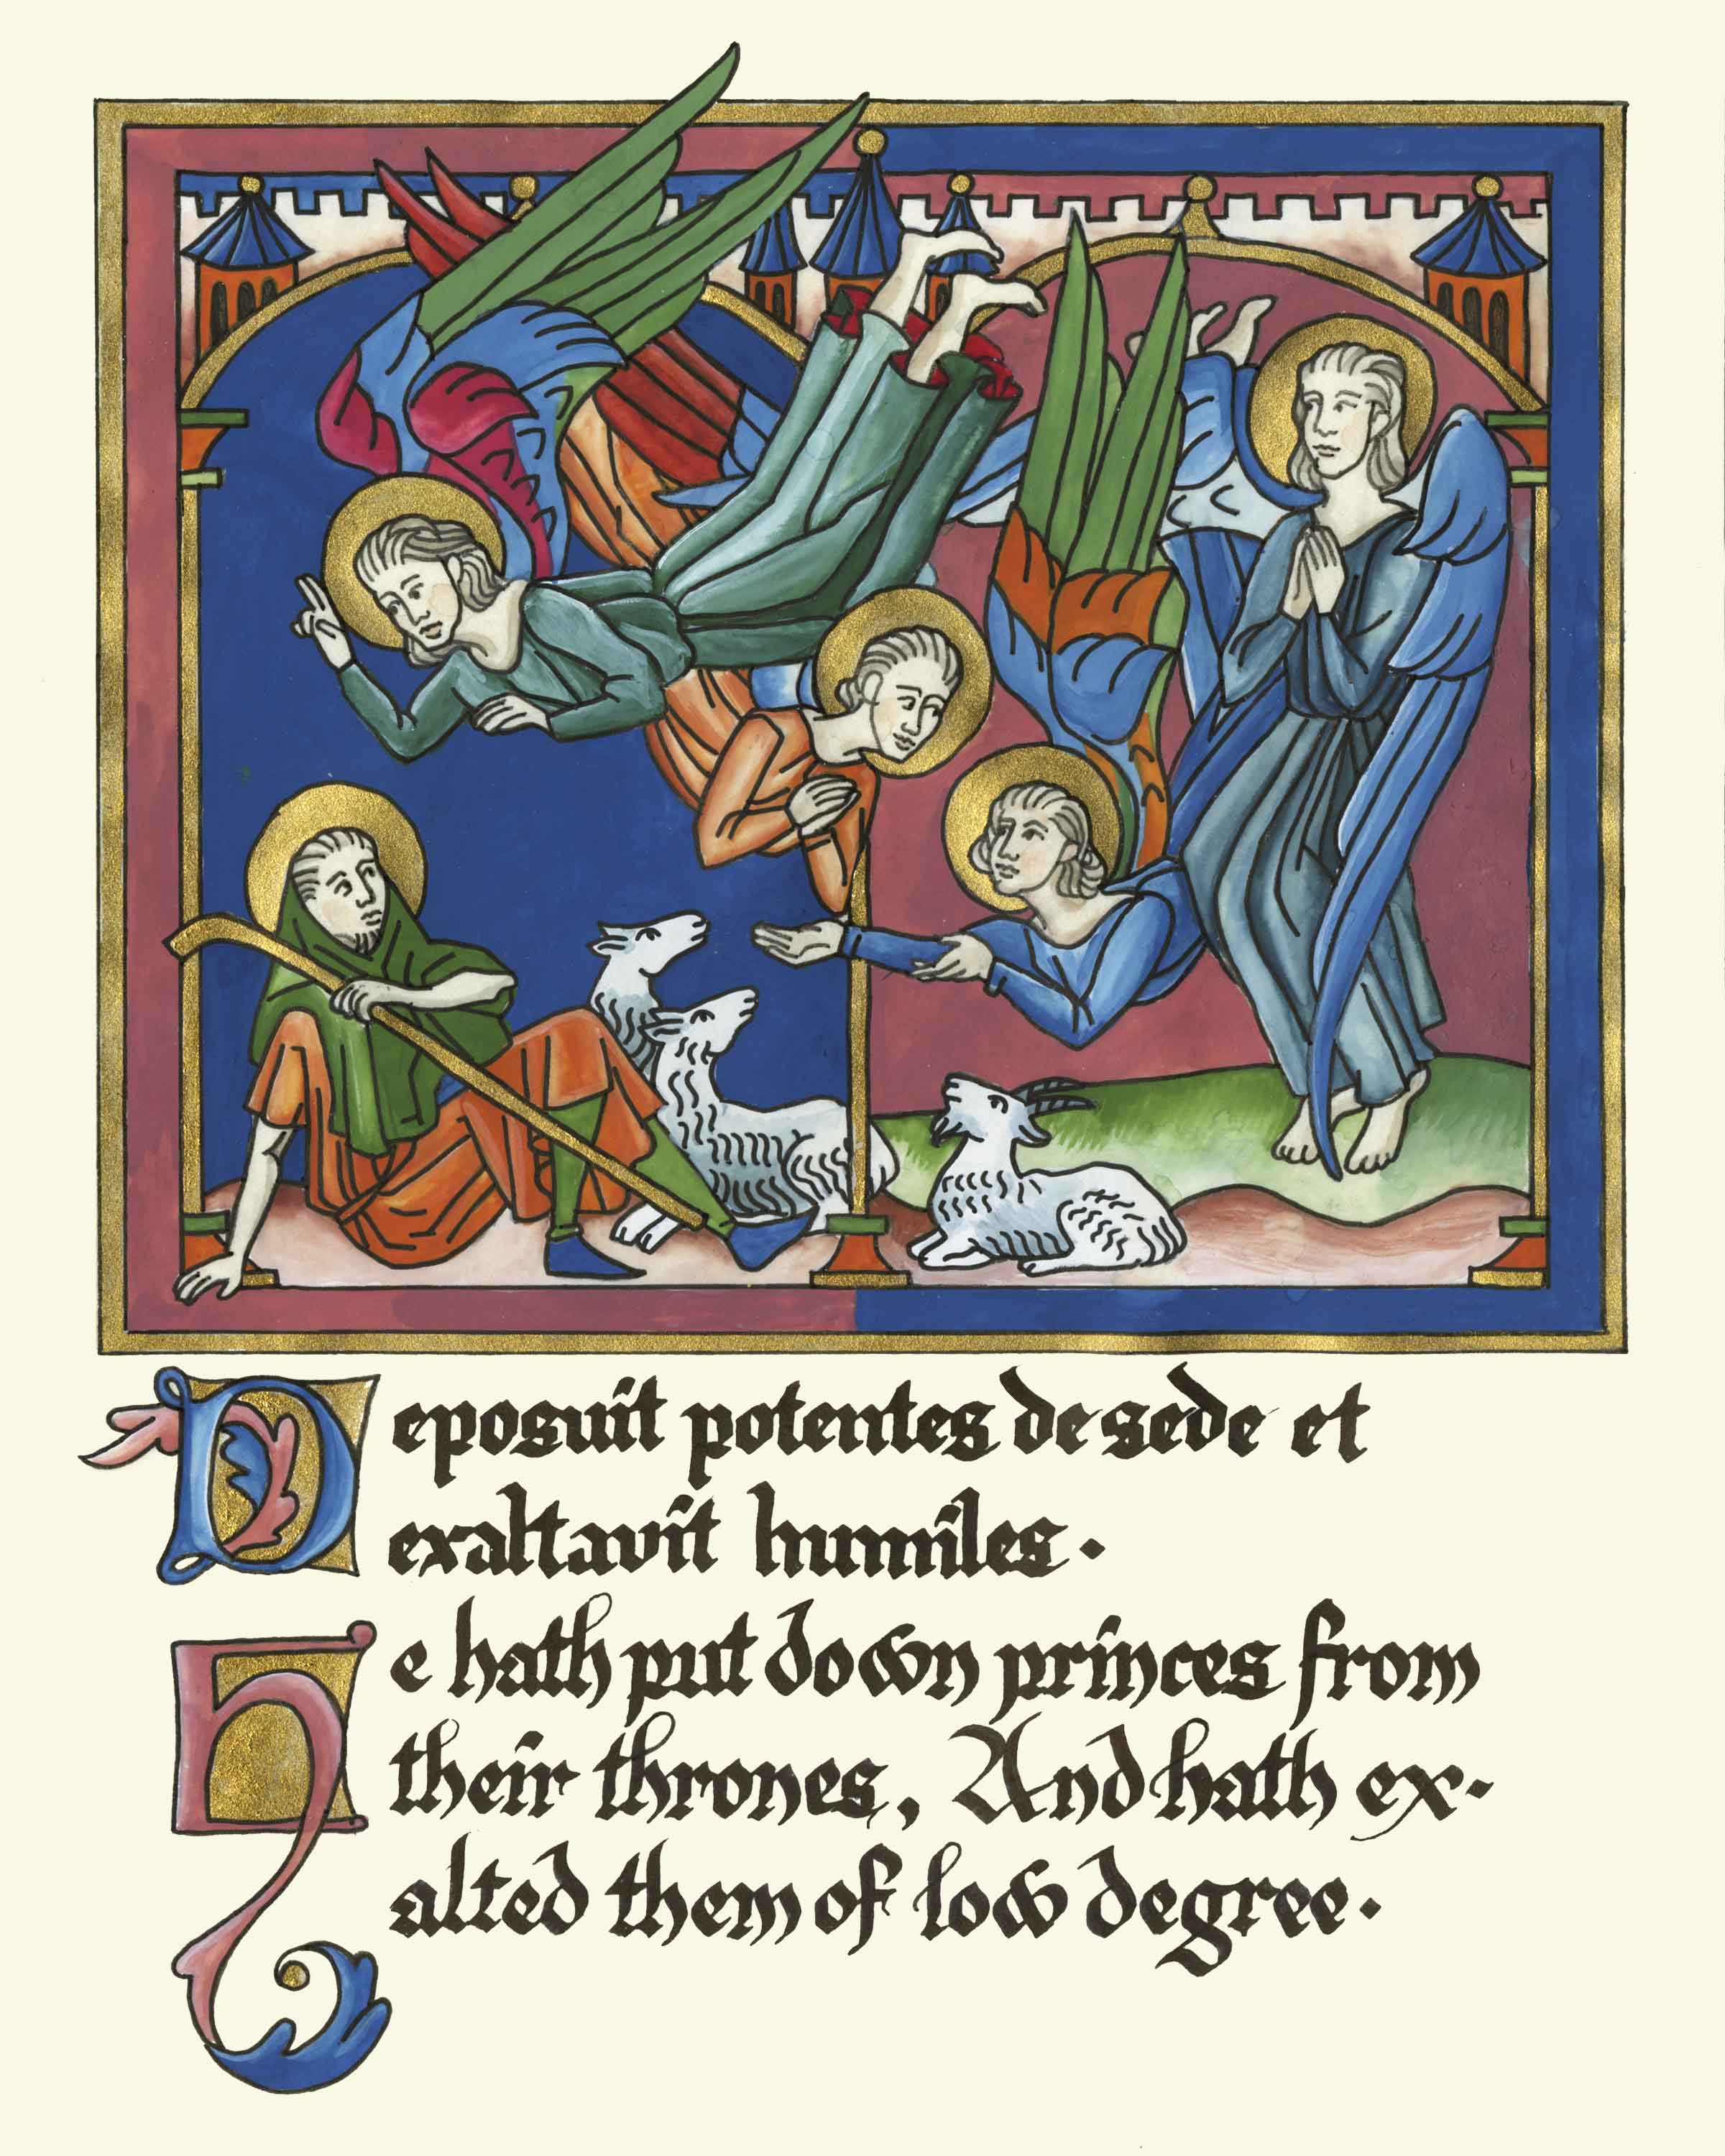 Deposuit potentes de sede et
exaltavit humiles.
He hath put down princes from
their thrones, And hath ex-
alted them of low degree.